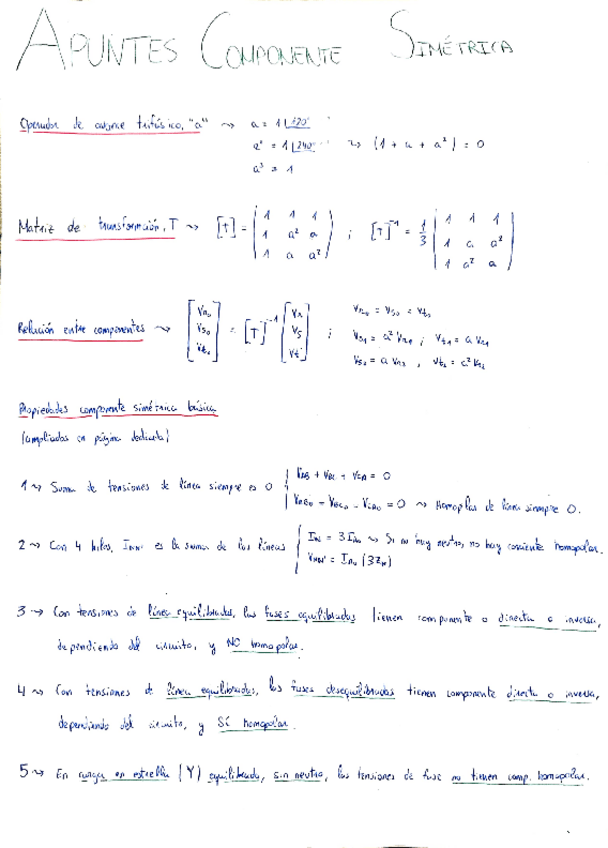 APUNTES COMPONENTE SIMÉTRICA
Operador de avance trifásico, "a" ⇝ a = 1∠120°
a² = 1∠240° ⇝ (1 + a + a²) = 0
a³ = 1
Matriz de transformación, T ⇝ [T] = (1 1 1; 1 a² a; 1 a a²) ; [T]⁻¹ = 1/3 (1 1 1; 1 a a²; 1 a² a)
Relación entre componentes ⇝ [T]⁻¹
Propiedades componente simétrica básica
(ampliadas en página dedicada)
1 ⇝ Suma de tensiones de línea siempre es 0 = 0
= 0 ⇝ Homoplas de línea siempre 0.
2 ⇝ Con 4 hilos, es la suma de las líneas ⇝ Si no hay neutro, no hay corriente homopolar.
3 ⇝ Con tensiones de línea equilibradas, las fases equilibradas tienen componente o directa o inversa,
dependiendo del circuito, y NO homopolar.
4 ⇝ Con tensiones de línea equilibradas, las fases desequilibradas tienen componente directa o inversa,
dependiendo del circuito, y SÍ homopolar.
5 ⇝ En carga en estrella (Y) equilibrada, sin neutro, las tensiones de fase no tienen comp. homopolar.